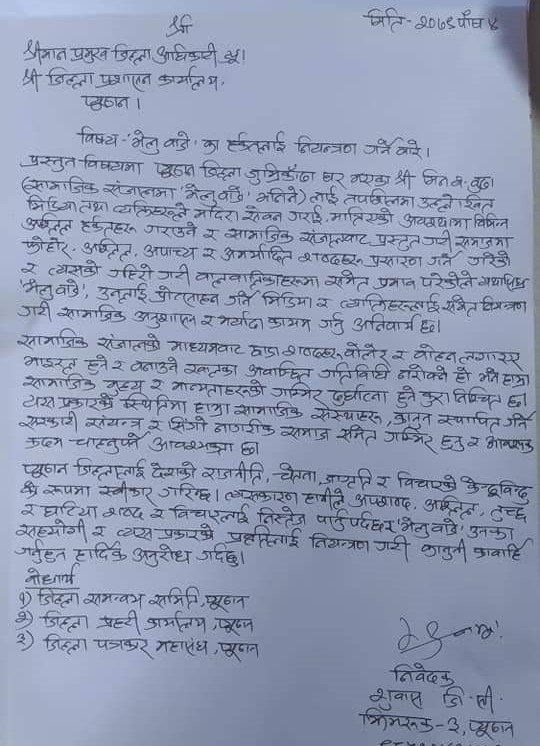 श्री
मिति- २०७९ पौष ४
श्रीमान प्रमुख जिल्ला अधिकारी ज्यू।
श्री जिल्ला प्रशासन कार्यालय,
प्यूठान।
विषय- 'भेलु वाडे' का हर्कतलाई नियन्त्रण गर्ने बारे।
प्रस्तुत विषयमा प्यूठान जिल्ला जुम्रिकाँडा घर भएका श्री मित्र ब. बुढा
(सामाजिक संजालमा 'भेलु वाडे' भनिने) लाई तपशिलमा उल्लेखित
मिडिया तथा व्यक्तिहरूले मदिरा सेवन गराई, मात्तिएको अवस्थामा विभिन्न
अश्लिल हर्कतहरू गराउने र सामाजिक संजालबाट प्रस्तुत गरी समाजमा
फोहोर, अश्लिल, अपाच्य र अमर्यादित शब्दहरू प्रसारण गर्ने गरेको
र त्यसको गहिरो गरी बालबालिकाहरूमा समेत प्रभाव परेकोले यथाशिघ्र
'भेलु वाडे', उनलाई प्रोत्साहन गर्ने मिडिया र व्यक्तिहरूलाई समेत नियन्त्रण
गरी सामाजिक अनुशासन र मर्यादा कायम गर्नु अनिवार्य छ।
सामाजिक संजालको माध्यमबाट छाडा शब्दहरू बोलेर र बोल्न लगाएर
भाइरल हुने र बनाउने खालका अवाञ्छित गतिविधि नरोक्ने हो भने हाम्रा
सामाजिक मुल्य र मान्यताहरूको गम्भिर दुर्घटना हुने कुरा निश्चित छ।
यस प्रकारको स्थितिमा हाम्रा सामाजिक संस्थाहरू, कानुन स्थापित गर्ने
सरकारी संयन्त्र र सिंगो नागरिक समाज समेत गम्भिर हुनु र आवश्यक
कदम चाल्नुपर्ने आवश्यकता छ।
प्यूठान जिल्लालाई देशको राजनीति, चेतना, जागृति र विचारको केन्द्रविन्दु
को रूपमा स्वीकार गरिन्छ। त्यसकारण हामीले अपशब्द, अश्लिल, तुच्छ
र घटिया शब्द र विचारलाई निस्तेज पार्नुपर्दछ र 'भेलु वाडे', उनका
सहयोगी र यस प्रकारको प्रवृत्तिलाई नियन्त्रण गरी कानुनी कारवाही
गर्नुहुन हार्दिक अनुरोध गर्दछु।
बोधार्थ
१) जिल्ला समन्वय समिति, प्यूठान
२) जिल्ला प्रहरी कार्यालय, प्यूठान
३) जिल्ला पत्रकार महासंघ, प्यूठान
निवेदक
शुवास जि.सी.
झिमरूक - ३, प्यूठान